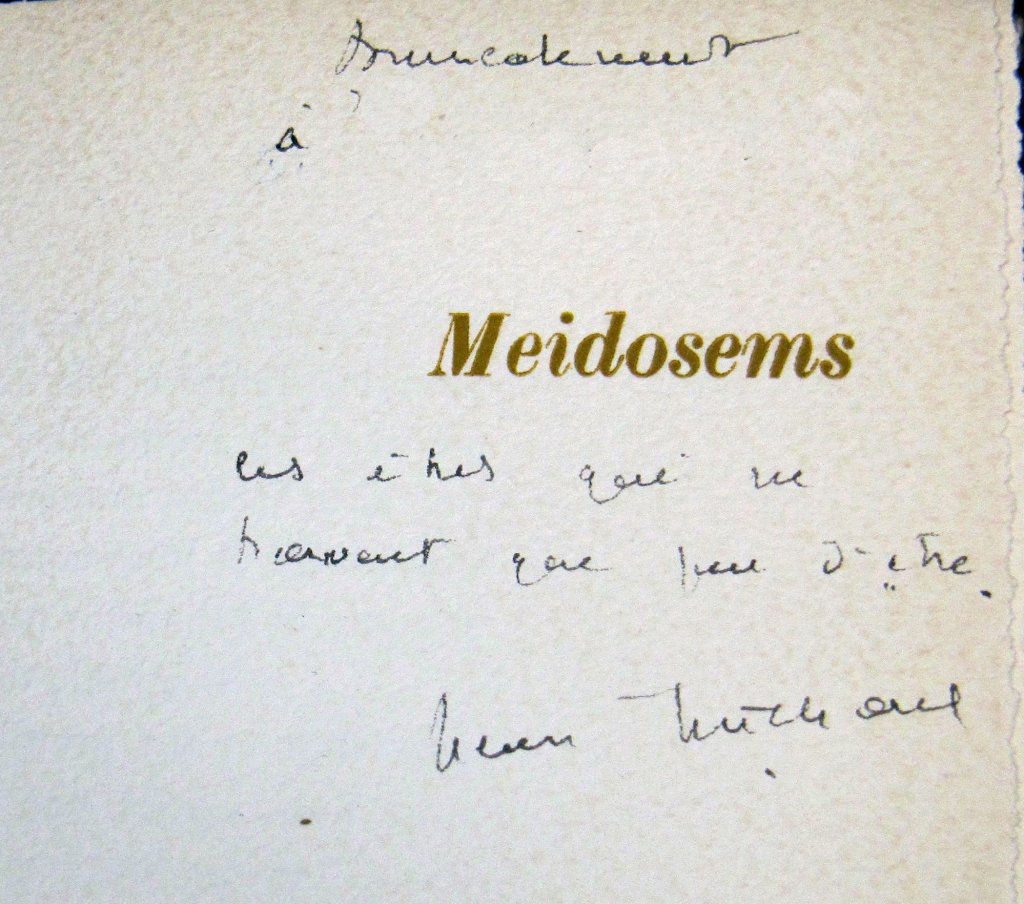 Amicalement
à
Meidosems
ces êtres qui ne
trouvent que peu d'être.
Henri Michaux